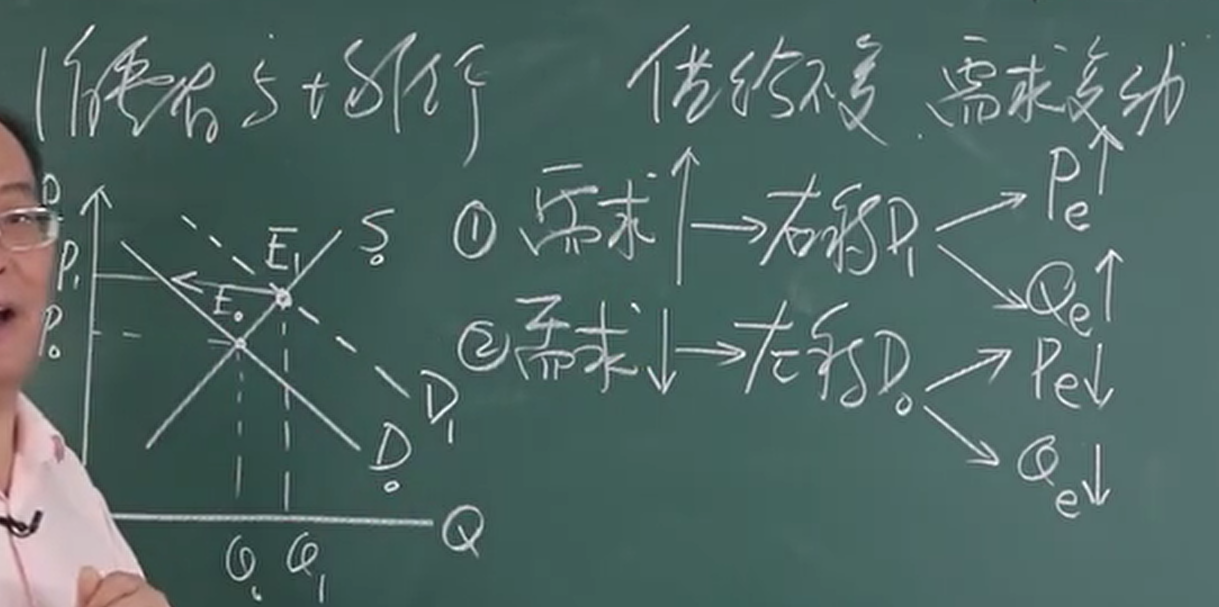 供给不变、需求变动
P
P₁
P₀
E₁
E₀
S₀
D₁
D₀
Q
Q₀ Q₁
① 需求↑→右移D₁
Pe↑
Qe↑
② 需求↓→左移D₀
Pe↓
Qe↓